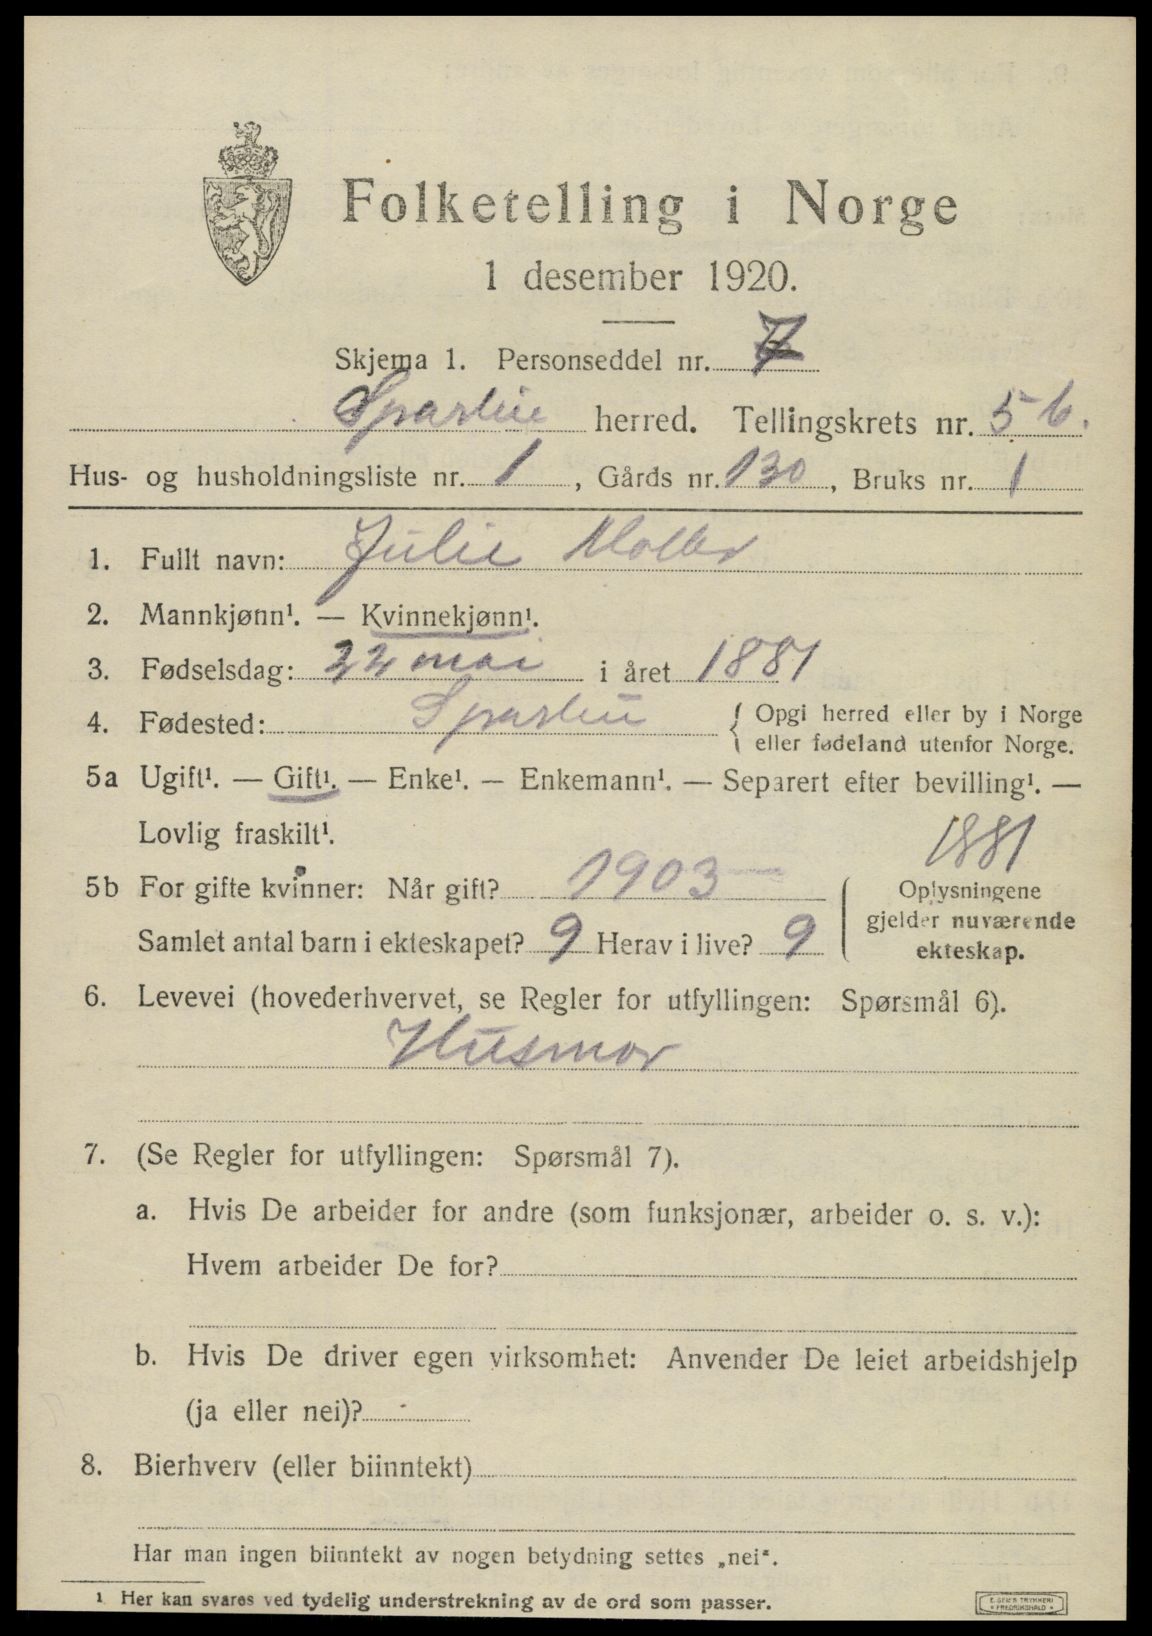 Folketelling i Norge
1 desember 1920.
Skjema 1. Personseddel nr. 7
herred. Tellingskrets nr. 5 b.
Hus- og husholdningsliste nr. 1, Gårds nr. 130, Bruks nr. 1
1. Fullt navn: Julie Moller
2. Mannkjønn¹. — Kvinnekjønn¹.
3. Fødselsdag: 22 mai i året 1881
4. Fødested: { Opgi herred eller by i Norge
eller fødeland utenfor Norge.
5a Ugift¹. — Gift¹. — Enke¹. — Enkemann¹. — Separert efter bevilling¹. —
Lovlig fraskilt¹.
1881
5b For gifte kvinner: Når gift? 1903
Samlet antal barn i ekteskapet? 9 Herav i live? 9
( Oplysningene
gjelder nuværende
ekteskap.
6. Levevei (hovederhvervet, se Regler for utfyllingen: Spørsmål 6).
Husmor
7. (Se Regler for utfyllingen: Spørsmål 7).
a. Hvis De arbeider for andre (som funksjonær, arbeider o. s. v.):
Hvem arbeider De for?
b. Hvis De driver egen virksomhet: Anvender De leiet arbeidshjelp
(ja eller nei)? -
8. Bierhverv (eller biinntekt)
Har man ingen biinntekt av nogen betydning settes „nei“.
¹ Her kan svares ved tydelig understrekning av de ord som passer.
E. SEM'S TRYKKERI
FREDRIKSHALD